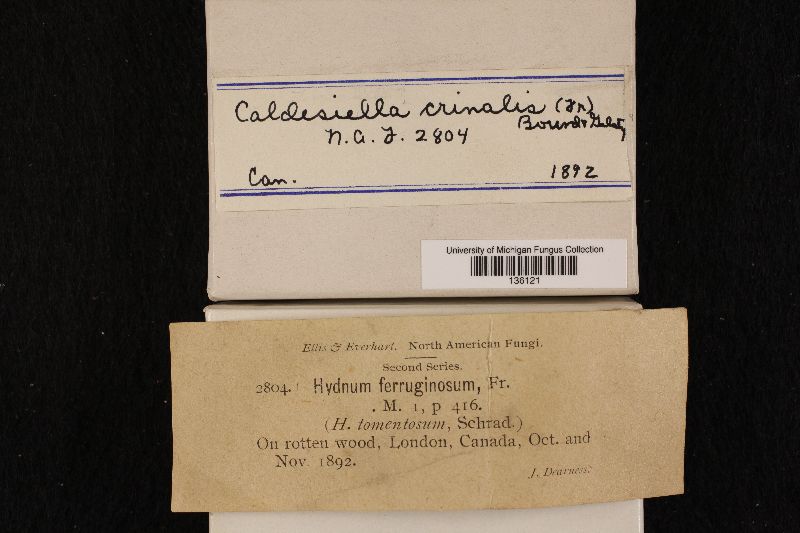 Caldesiella crinalis (Fr)
Bourd & Galz
N.A.F. 2804
Can. 1892
University of Michigan Fungus Collection
136121
Ellis & Everhart. North American Fungi.
Second Series.
2804. Hydnum ferruginosum, Fr.
. M. 1, p 416.
(H. tomentosum, Schrad.)
On rotten wood, London, Canada, Oct. and
Nov. 1892.
J. Dearness.